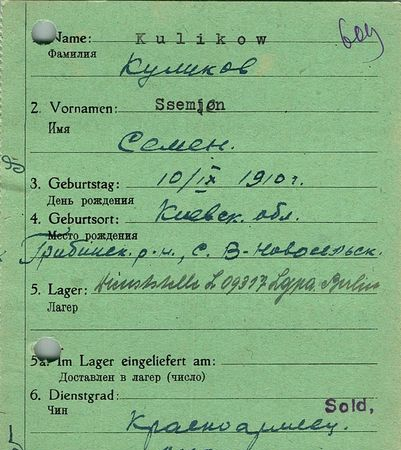 1. Name: Kulikow
Фамилия
Куликов
2. Vornamen: Ssemjon
Имя
Семен.
3. Geburtstag: 10/IX 1910г.
День рождения
4. Geburtsort: Киевск. обл.
Место рождения
р-н, с. В-Новосельск.
5. Lager: Dienststelle L 09317 Lgpa. Berlin
Лагер
5a. Im Lager eingeliefert am:
Доставлен в лагер (число)
6. Dienstgrad: Sold,
Чин
Красноармеец